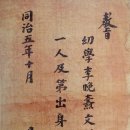 敎旨
幼學李晩燾文
一人及第出身
同治五年十月